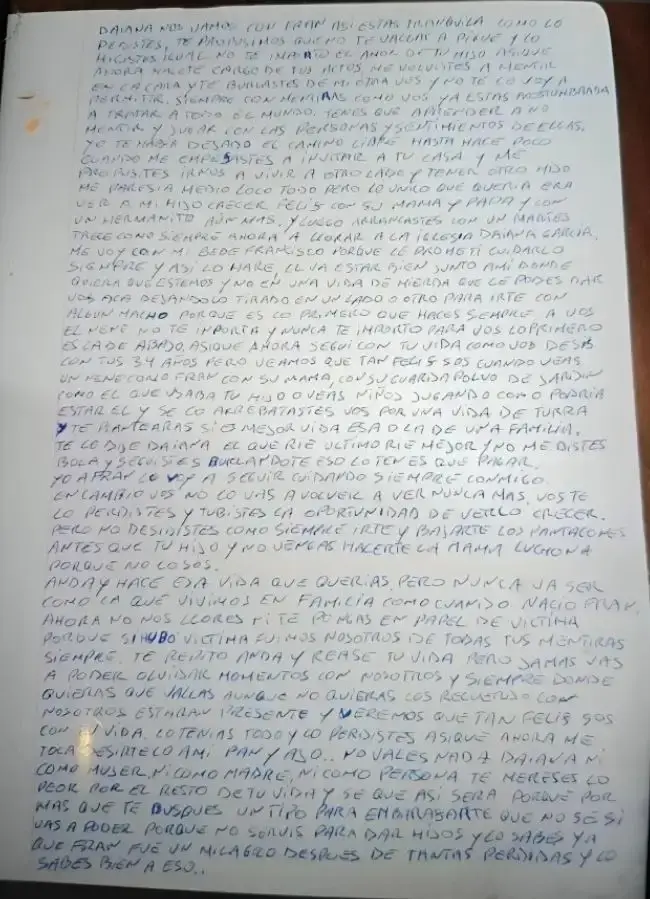 DAIANA NOS VAMOS CON FRAN ASI ESTAS TRANQUILA COMO LO
PEDISTES, TE PEDISSIMOS QUE NO TE VALLAS A PIQUE Y LO
HICISTES IGUAL NO TE IMPORTO EL AMOR DE TU HIJO ASIQUE
AHORA HACETE CARGO DE TUS ACTOS ME VOLVISTES A MENTIR
EN LA CARA Y TE BURLASTES DE MI OTRA VOS Y NO TE LO VOY A
PERMITIR. SIEMPRE CON MENTIRAS COMO VOS YA ESTAS ACOSTUMBRADA
A TRATAR A TODO EL MUNDO. TENES QUE APRENDER A NO
MENTIR Y JUGAR CON LAS PERSONAS Y SENTIMIENTOS DE ELLAS.
YO TE HABIA DEJADO EL CAMINO LIBRE HASTA HACE POCO
CUANDO ME EMPESASTES A INVITAR A TU CASA Y ME
PROPUSITES IRNOS A VIVIR A OTRO LADO Y TENER OTRO HIJO
ME PARESIA MEDIO LOCO TODO PERO LO UNICO QUE QUERIA ERA
VER A MI HIJO CRECER FELIS CON SU MAMA Y PAPA Y CON
UN HERMANITO AUN MAS. Y LUEGO ARRANCASTES CON UN MARTES
TRECE COMO SIEMPRE AHORA A LLORAR A LA IGLESIA DAIANA GARCIA.
ME VOY CON MI BEBE FRANCISCO PORQUE LE PROMETI CUIDARLO
SIEMPRE Y ASI LO HARE, EL VA ESTAR BIEN JUNTO AMI DONDE
QUIERA QUE ESTEMOS Y NO EN UNA VIDA DE MIERDA QUE LE PODES DAR
VOS ACA DEJANDOLO TIRADO EN UN LADO O OTRO PARA IRTE CON
ALGUN MACHO PORQUE ES LO PRIMERO QUE HACES SIEMPRE, A VOS
EL NENE NO TE INPORTA Y NUNCA TE IMPORTO PARA VOS LO PRIMERO
ES LA DE ABAJO. ASIQUE AHORA SEGUI CON TU VIDA COMO VOS
CON TUS 34 AÑOS PERO VEAMOS QUE TAN FELIS SOS CUANDO VEAS
UN NENE COMO FRAN CON SU MAMA, CON SU GUARDAPOLVO DE JARDIN
COMO EL QUE USABA TU HIJO O VEAS NIÑOS JUGANDO COMO PODRIA
ESTAR EL Y SE LO ARREBATASTES VOS POR UNA VIDA DE TURRA
Y TE PLANTEARAS SI ES MEJOR VIDA ESA O LA DE UNA FAMILIA.
TE LO DIJE DAIANA EL QUE RIE ULTIMO RIE MEJOR Y NO ME DISTES
BOLA Y SEGUISTES BURLANDOTE ESO LO TENES QUE PAGAR.
YO A FRAN LO VOY A SEGUIR CUIDANDO SIEMPRE CONMIGO.
EN CAMBIO VOS NO LO VAS A VOLVER A VER NUNCA MAS. VOS TE
LO PERDISTES Y TUBISTES LA OPORTUNIDAD DE VERLO CRECER.
PERO NO DESIDISTES COMO SIEMPRE IRTE Y BAJARTE LOS PANTALONES
ANTES QUE TU HIJO Y NO VENGAS HACERTE LA MAMA LUCHONA
PORQUE NO LO SOS.
ANDA Y HACE ESA VIDA QUE QUERIAS. PERO NUNCA VA SER
COMO LA QUE VIVIMOS EN FAMILIA COMO CUANDO NACIO FRAN.
AHORA NO NOS LLORES NI TE PONGAS EN PAPEL DE VICTIMA
PORQUE SI HUBO VICTIMA FUIMOS NOSOTROS DE TODAS TUS MENTIRAS
SIEMPRE. TE REPITO ANDA Y REASE TU VIDA PERO JAMAS VAS
A PODER OLVIDAR MOMENTOS CON NOSOTROS Y SIEMPRE DONDE
QUIERAS QUE VALLAS AUNQUE NO QUIERAS LOS RECUERDOS CON
NOSOTROS ESTARAN PRESENTE Y VEREMOS QUE TAN FELIS SOS
CON TU VIDA. LO TENIAS TODO Y LO PERDISTES ASIQUE AHORA ME
TOCA DESIRTELO AMI PAN Y AJO.. NO VALES NADA DAIANA NI
COMO MUJER, NI COMO MADRE, NI COMO PERSONA TE MERESES LO
PEOR POR EL RESTO DE TU VIDA Y SE QUE ASI SERA PORQUE POR
MAS QUE TE BUSQUES UN TIPO PARA EMBARASARTE QUE NO SE SI
VAS A PODER PORQUE NO SERVIS PARA DAR HIJOS Y LO SABES YA
QUE FRAN FUE UN MILAGRO DESPUES DE TANTAS PERDIDAS Y LO
SABES BIEN A ESO..